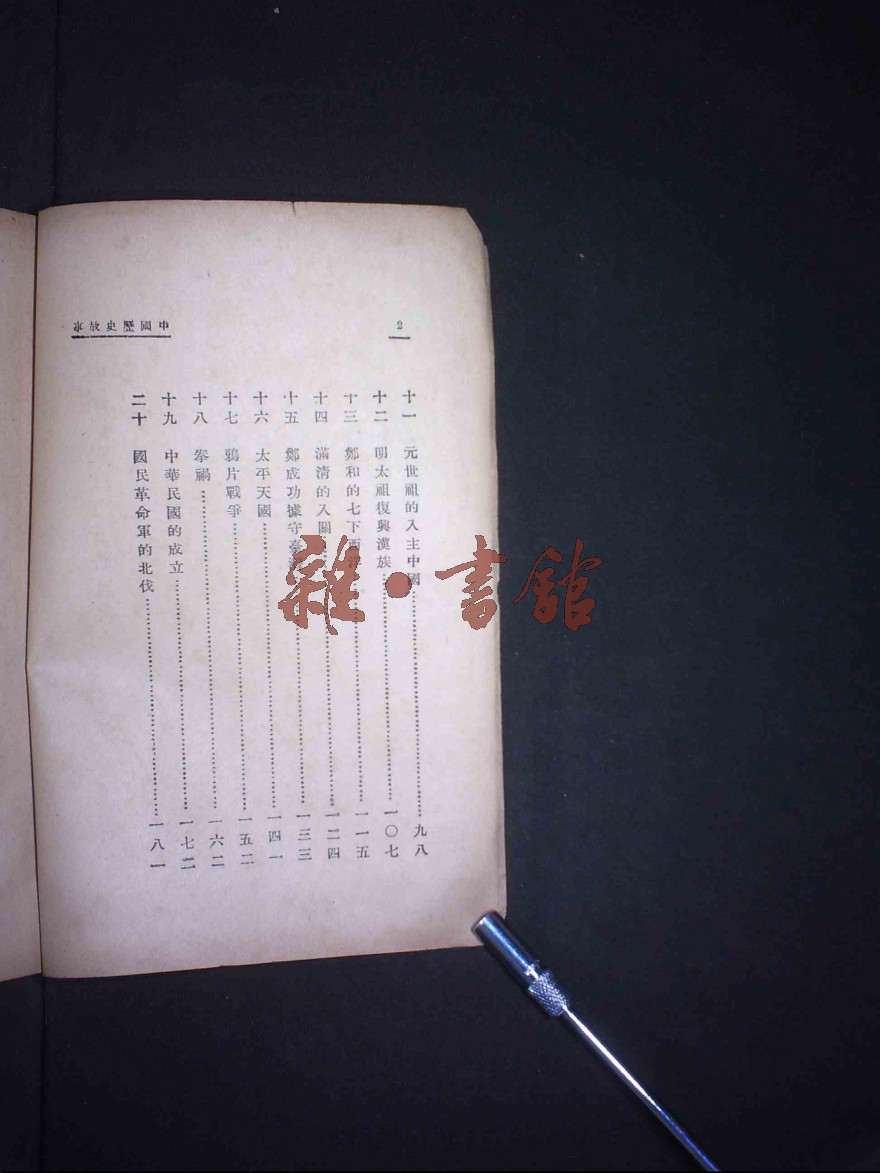 2
中國歷史故事
十一 元世祖的入主中國……九八
十二 明太祖復興漢族……一〇七
十三 鄭和的七下西洋……一一五
十四 滿清的入關……一二四
十五 鄭成功據守臺灣……一三三
十六 太平天國……一四一
十七 鴉片戰爭……一五二
十八 拳禍……一六二
十九 中華民國的成立……一七二
二十 國民革命軍的北伐……一八一
雜·書館